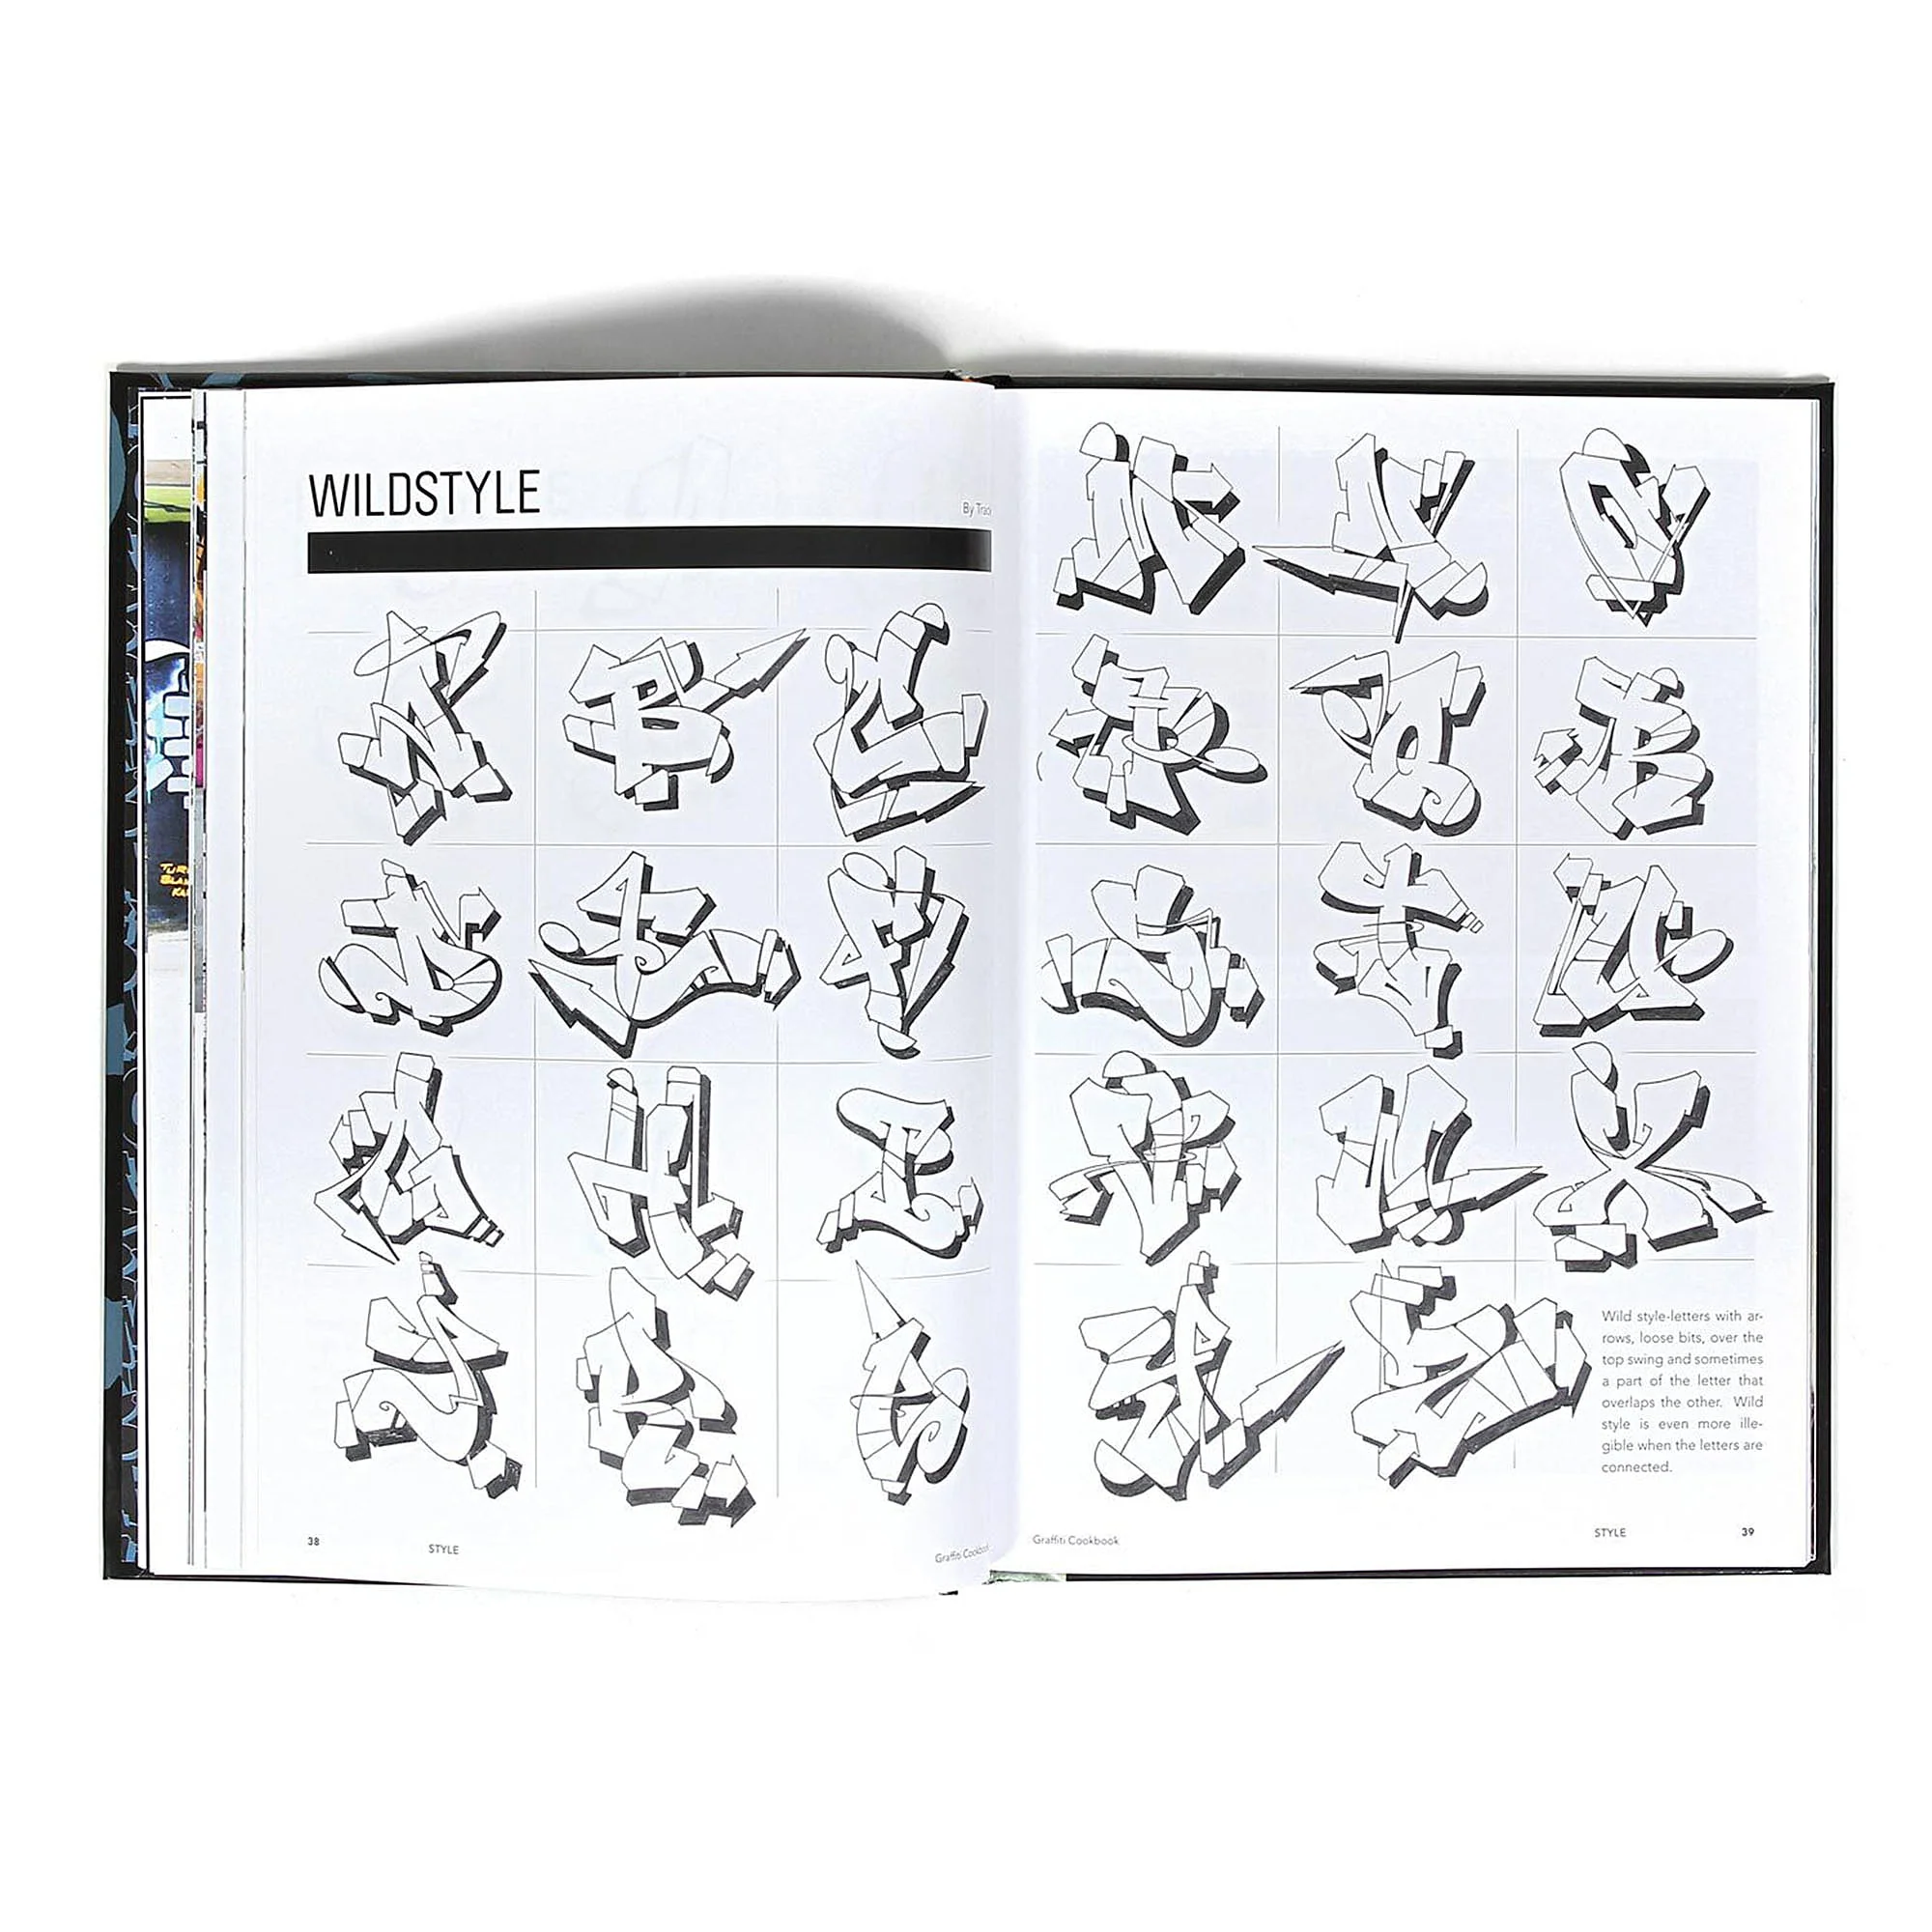 WILDSTYLE
By
A B C
D E F
G H I
J K L
38
STYLE
Graffiti
M N O
P Q R
S T U
V W X
Y Z
Wild style-letters with ar-
rows, loose bits, over the
top swing and sometimes
a part of the letter that
overlaps the other. Wild
style is even more ille-
gible when the letters are
connected.
Graffiti Cookbook
STYLE
39